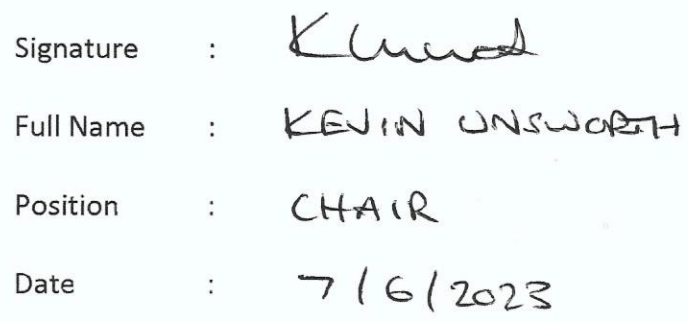 Signature :
Full Name : KEVIN UNSWORTH
Position : CHAIR
Date : 7/6/2023